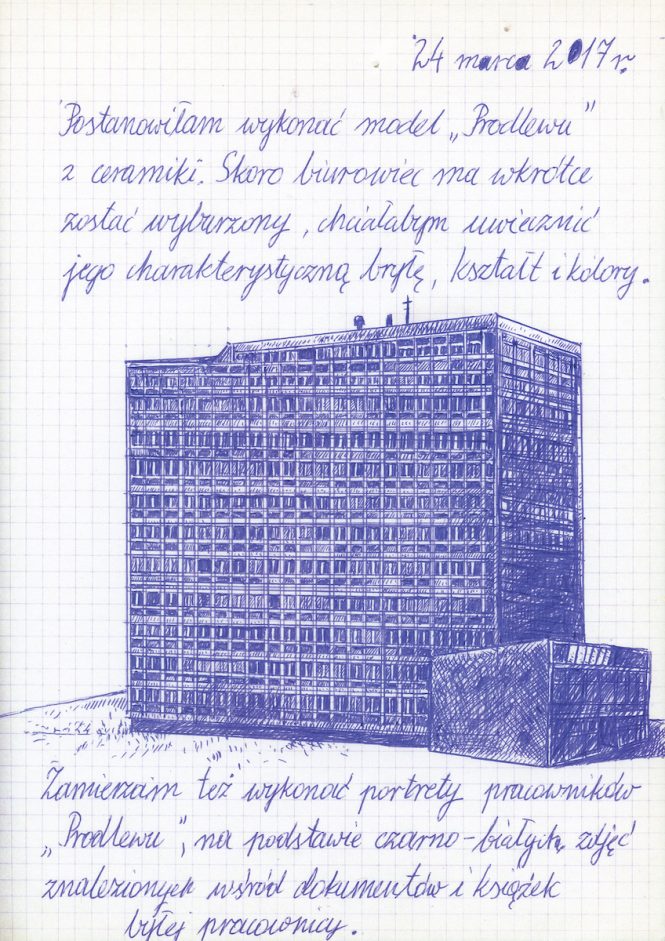 24 marca 2017 r.
Postanowiłam wykonać model „Prodlewu”
z ceramiki. Skoro biurowiec ma wkrótce
zostać wyburzony, chciałabym uwiecznić
jego charakterystyczną bryłę, kształt i kolory.
Zamierzam też wykonać portrety pracowników
„Prodlewu”, na podstawie czarno-białych zdjęć
znalezionych wśród dokumentów i książek
byłej pracownicy.